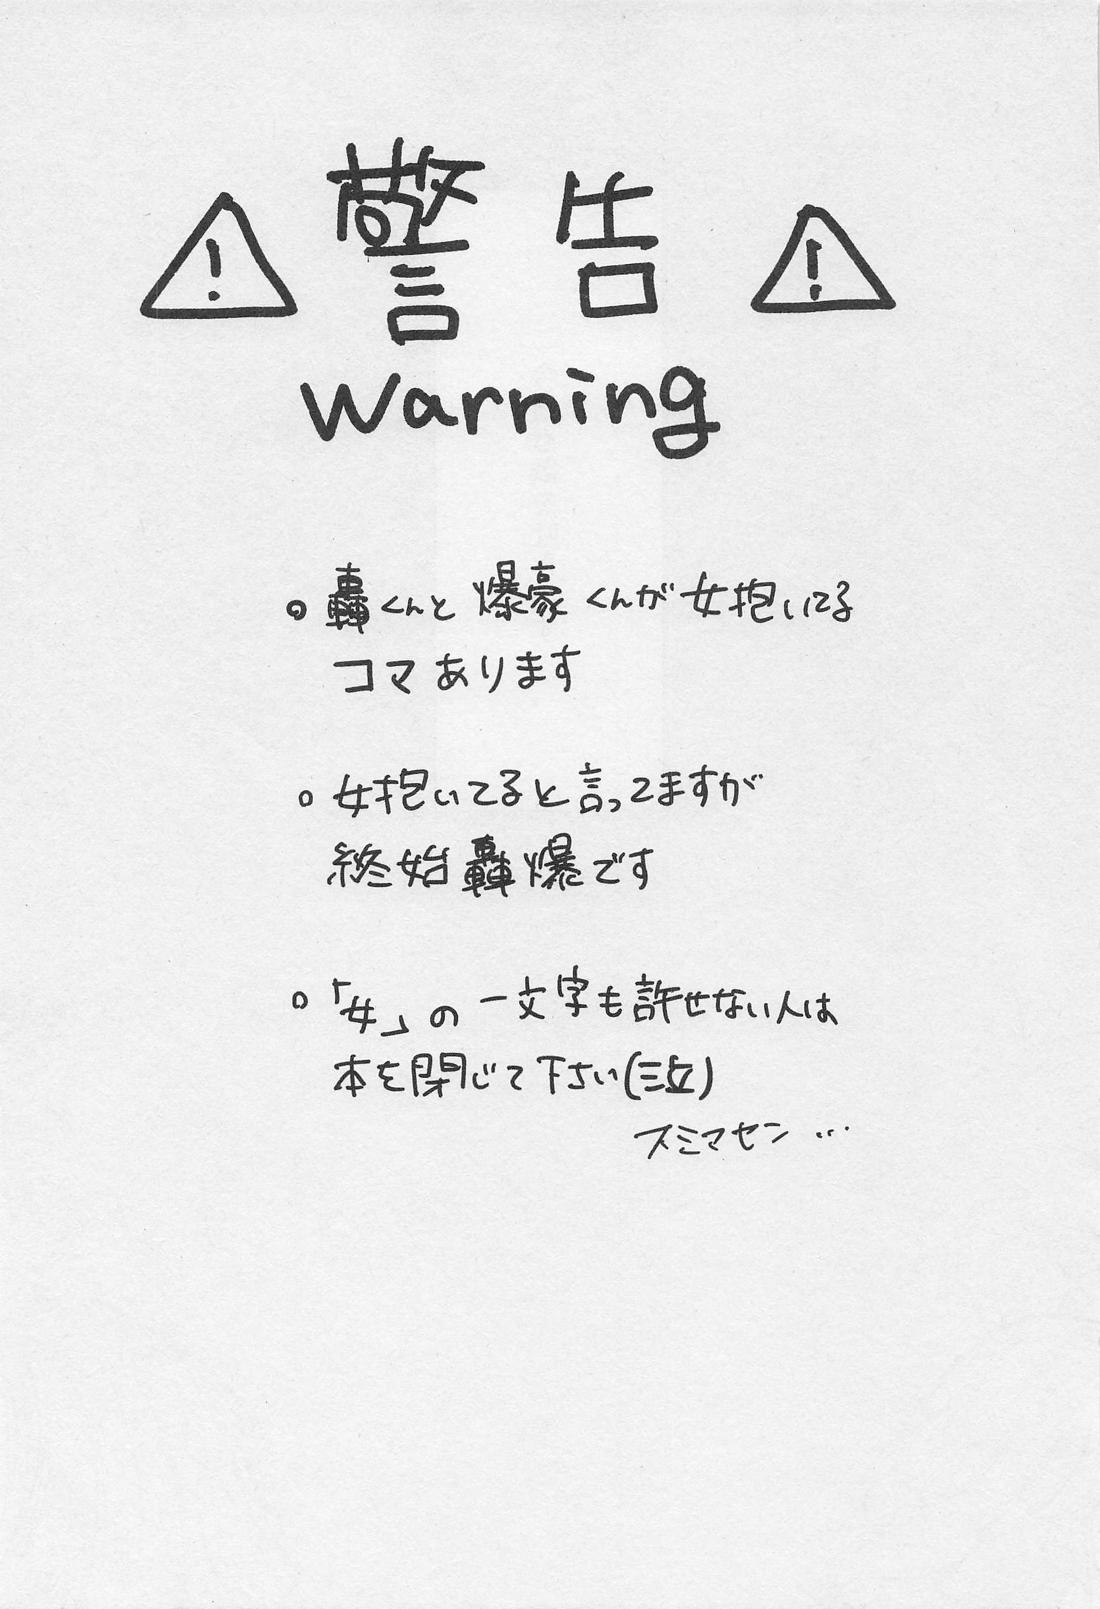 警告
Warning
。轟くんと爆豪くんが女抱いてる
コマあります
。女抱いてると言ってますが
終始轟爆です
。「女」の一文字も許せない人は
本を閉じて下さい(泣)
スミマセン…